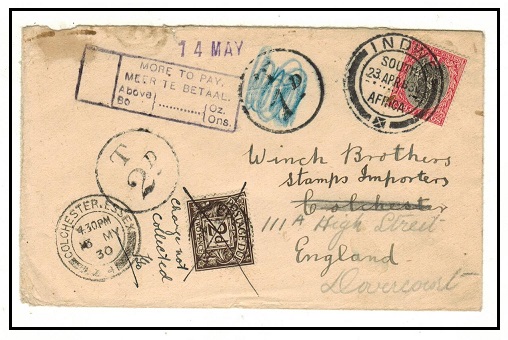 14 MAY
MORE TO PAY.
MEER TE BETAAL.
Above
Bo
Oz.
Ons.
SOUTH
23 APR
AFRICA
T
2D
COLCHESTER. ESSEX
4.30PM
MY
30
Charge not
collected
POSTAGE DUE
2D
Winch Brothers
Stamps Importers
Colchester
111A High Street
England
Dovercourt